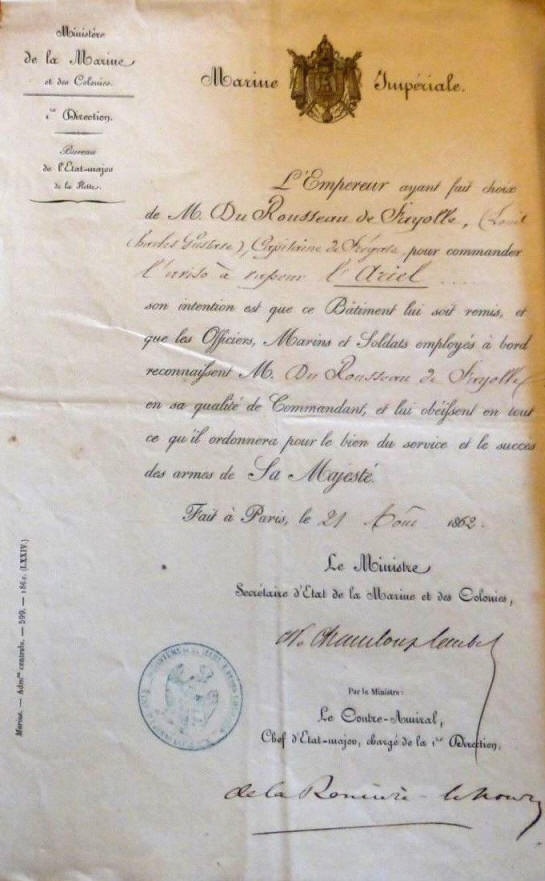 Ministère
de la Marine
et des Colonies.
1re Direction.
Bureau
de l'Etat-major
de la flotte.
Marine Impériale.
L'Empereur ayant fait choix
de M. Du Rousseau de Fayolle, (Louis
Charles Gustave), Capitaine de Frégate, pour commander
l'aviso à vapeur l'Ariel
son intention est que ce Bâtiment lui soit remis, et
que les Officiers, Marins et Soldats employés à bord
reconnaissent M. Du Rousseau de Fayolle
en sa qualité de Commandant, et lui obéissent en tout
ce qu'il ordonnera pour le bien du service et le succès
des armes de Sa Majesté.
Fait à Paris, le 21 Août 1862.
Le Ministre
Secrétaire d'Etat de la Marine et des Colonies,
Chasseloup Laubat
Par le Ministre:
Le Contre-Amiral,
Chef d'Etat-major, chargé de la 1re Direction,
de la Roncière-le Noury
Marine. — Admon centrale. — 599. — 186 . (LXXIV.)